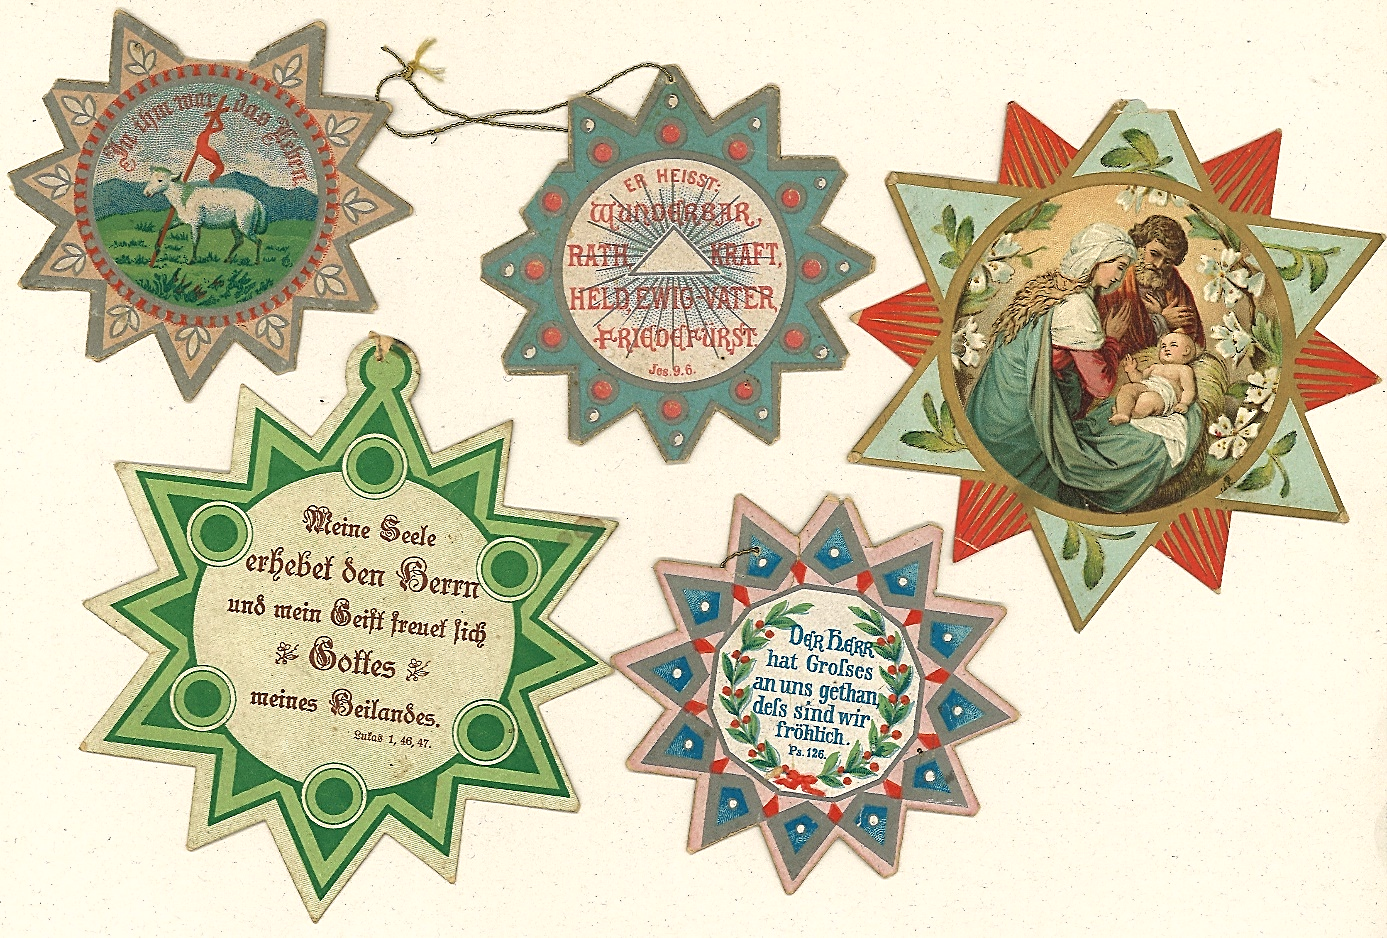 In ihm war das Leben
ER HEISST:
WUNDERBAR,
RATH KRAFT,
HELD, EWIG-VATER,
FRIEDEFÜRST.
Jes. 9. 6.
Meine Seele
erhebet den Herrn
und mein Geiſt freuet ſich
Gottes
meines Heilandes.
Lukas 1, 46, 47.
DER HERR
hat Groſses
an uns gethan,
deſs sind wir
fröhlich.
Ps. 126.